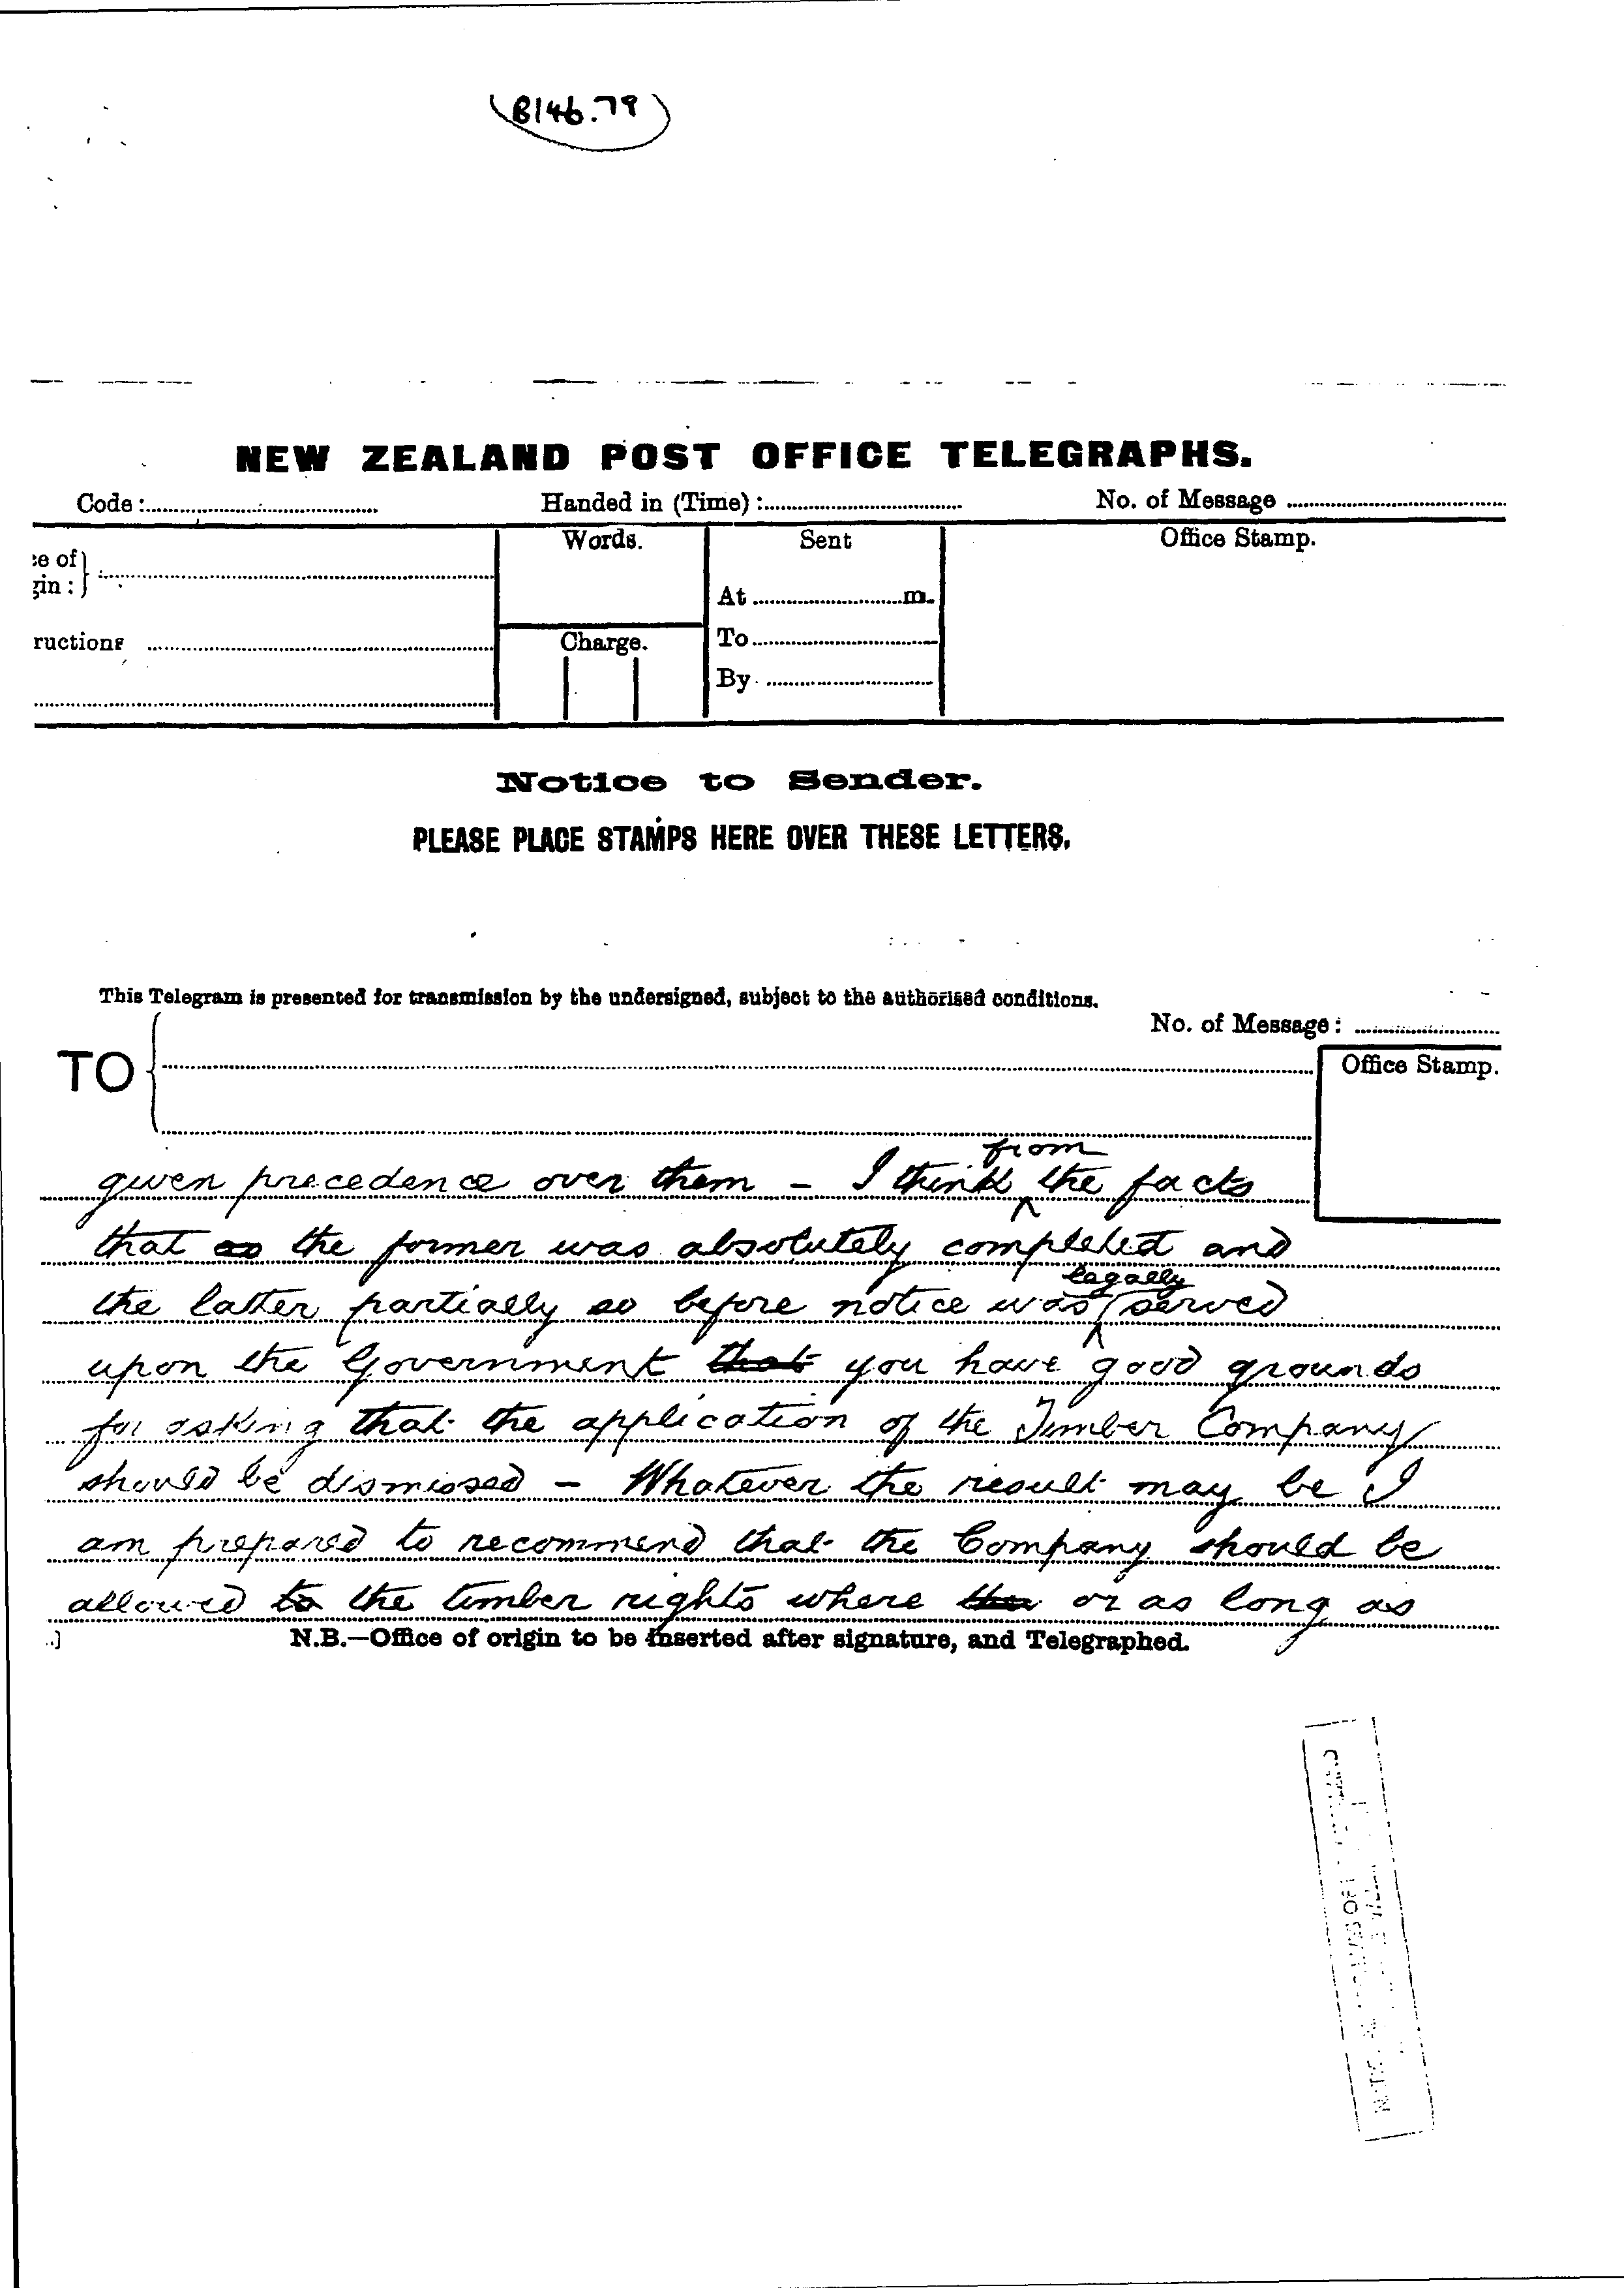 B146.79
NEW ZEALAND POST OFFICE TELEGRAPHS.
Code: Handed in (Time): No. of Message
Words. Sent Office Stamp.
ce of
gin:
At m.
ructions Charge. To
By
Notice to Sender.
PLEASE PLACE STAMPS HERE OVER THESE LETTERS.
This Telegram is presented for transmission by the undersigned, subject to the authorised conditions.
No. of Message:
TO Office Stamp.
from
given precedence over them - I think the facts
that as the former was absolutely completed and
legally
the latter partially so before notice was served
upon the Government that you have good grounds
for asking that the application of the Timber Company
should be dismissed - Whatever the result may be I
am prepared to recommend that the Company should be
allowed to the timber rights where or as long as
N.B.—Office of origin to be inserted after signature, and Telegraphed.